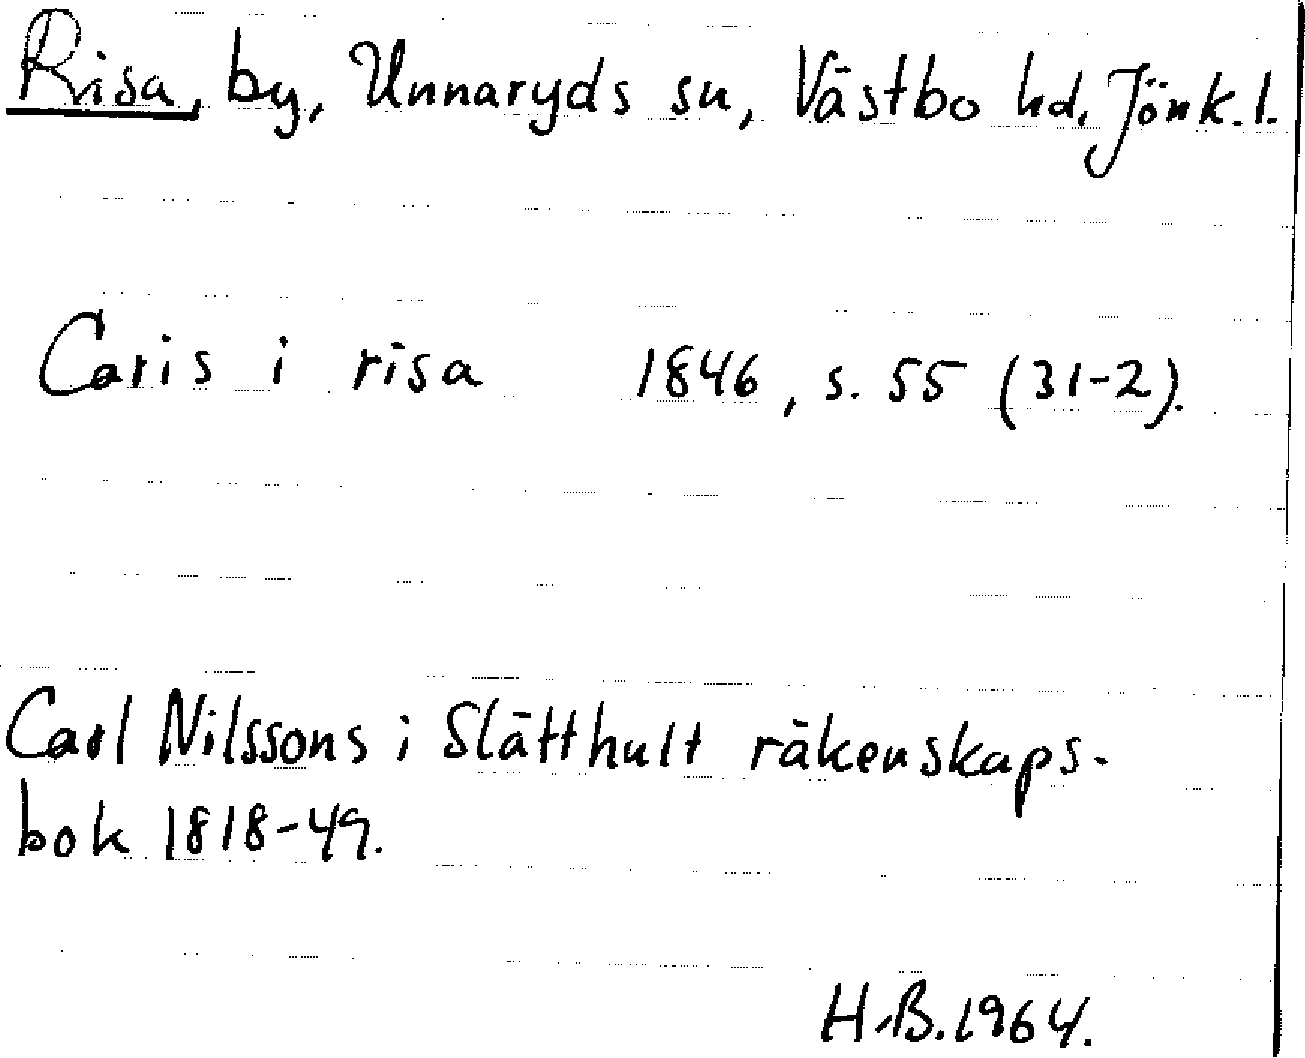 Risa, by, Unnaryds sn, Västbo hd, Jönk. l.
Caris i risa 1846, s. 55 (31-2).
Carl Nilssons i Slätthult räkenskaps-
bok 1818-49.
H.B. 1964.